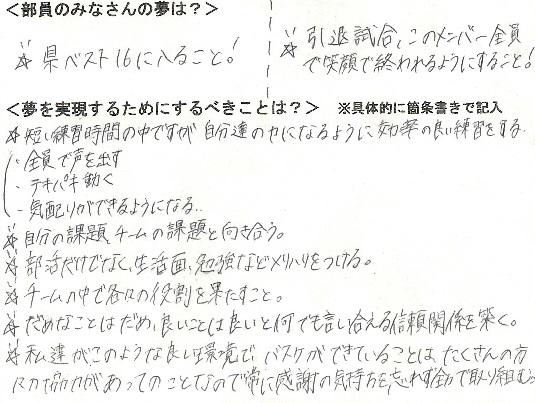 <部員のみなさんの夢は?>
☆県ベスト16に入ること!
☆引退試合、このメンバー全員
で笑顔で終われるようにすること!
<夢を実現するためにするべきことは?> ※具体的に箇条書きで記入
☆短い練習時間の中ですが自分達の力になるように効率の良い練習をする。
・全員で声を出す
・テキパキ動く
・気配りができるようになる。
☆自分の課題、チームの課題と向き合う。
☆部活だけでなく、生活面、勉強などメリハリをつける。
☆チームの中で各々の役割を果たすこと。
☆だめなことはだめ、良いことは良いと何でも言い合える信頼関係を築く。
☆私達がこのような良い環境でバスケができていることは、たくさんの方
の協力があってのことなので常に感謝の気持ちを忘れず全力で取り組む。